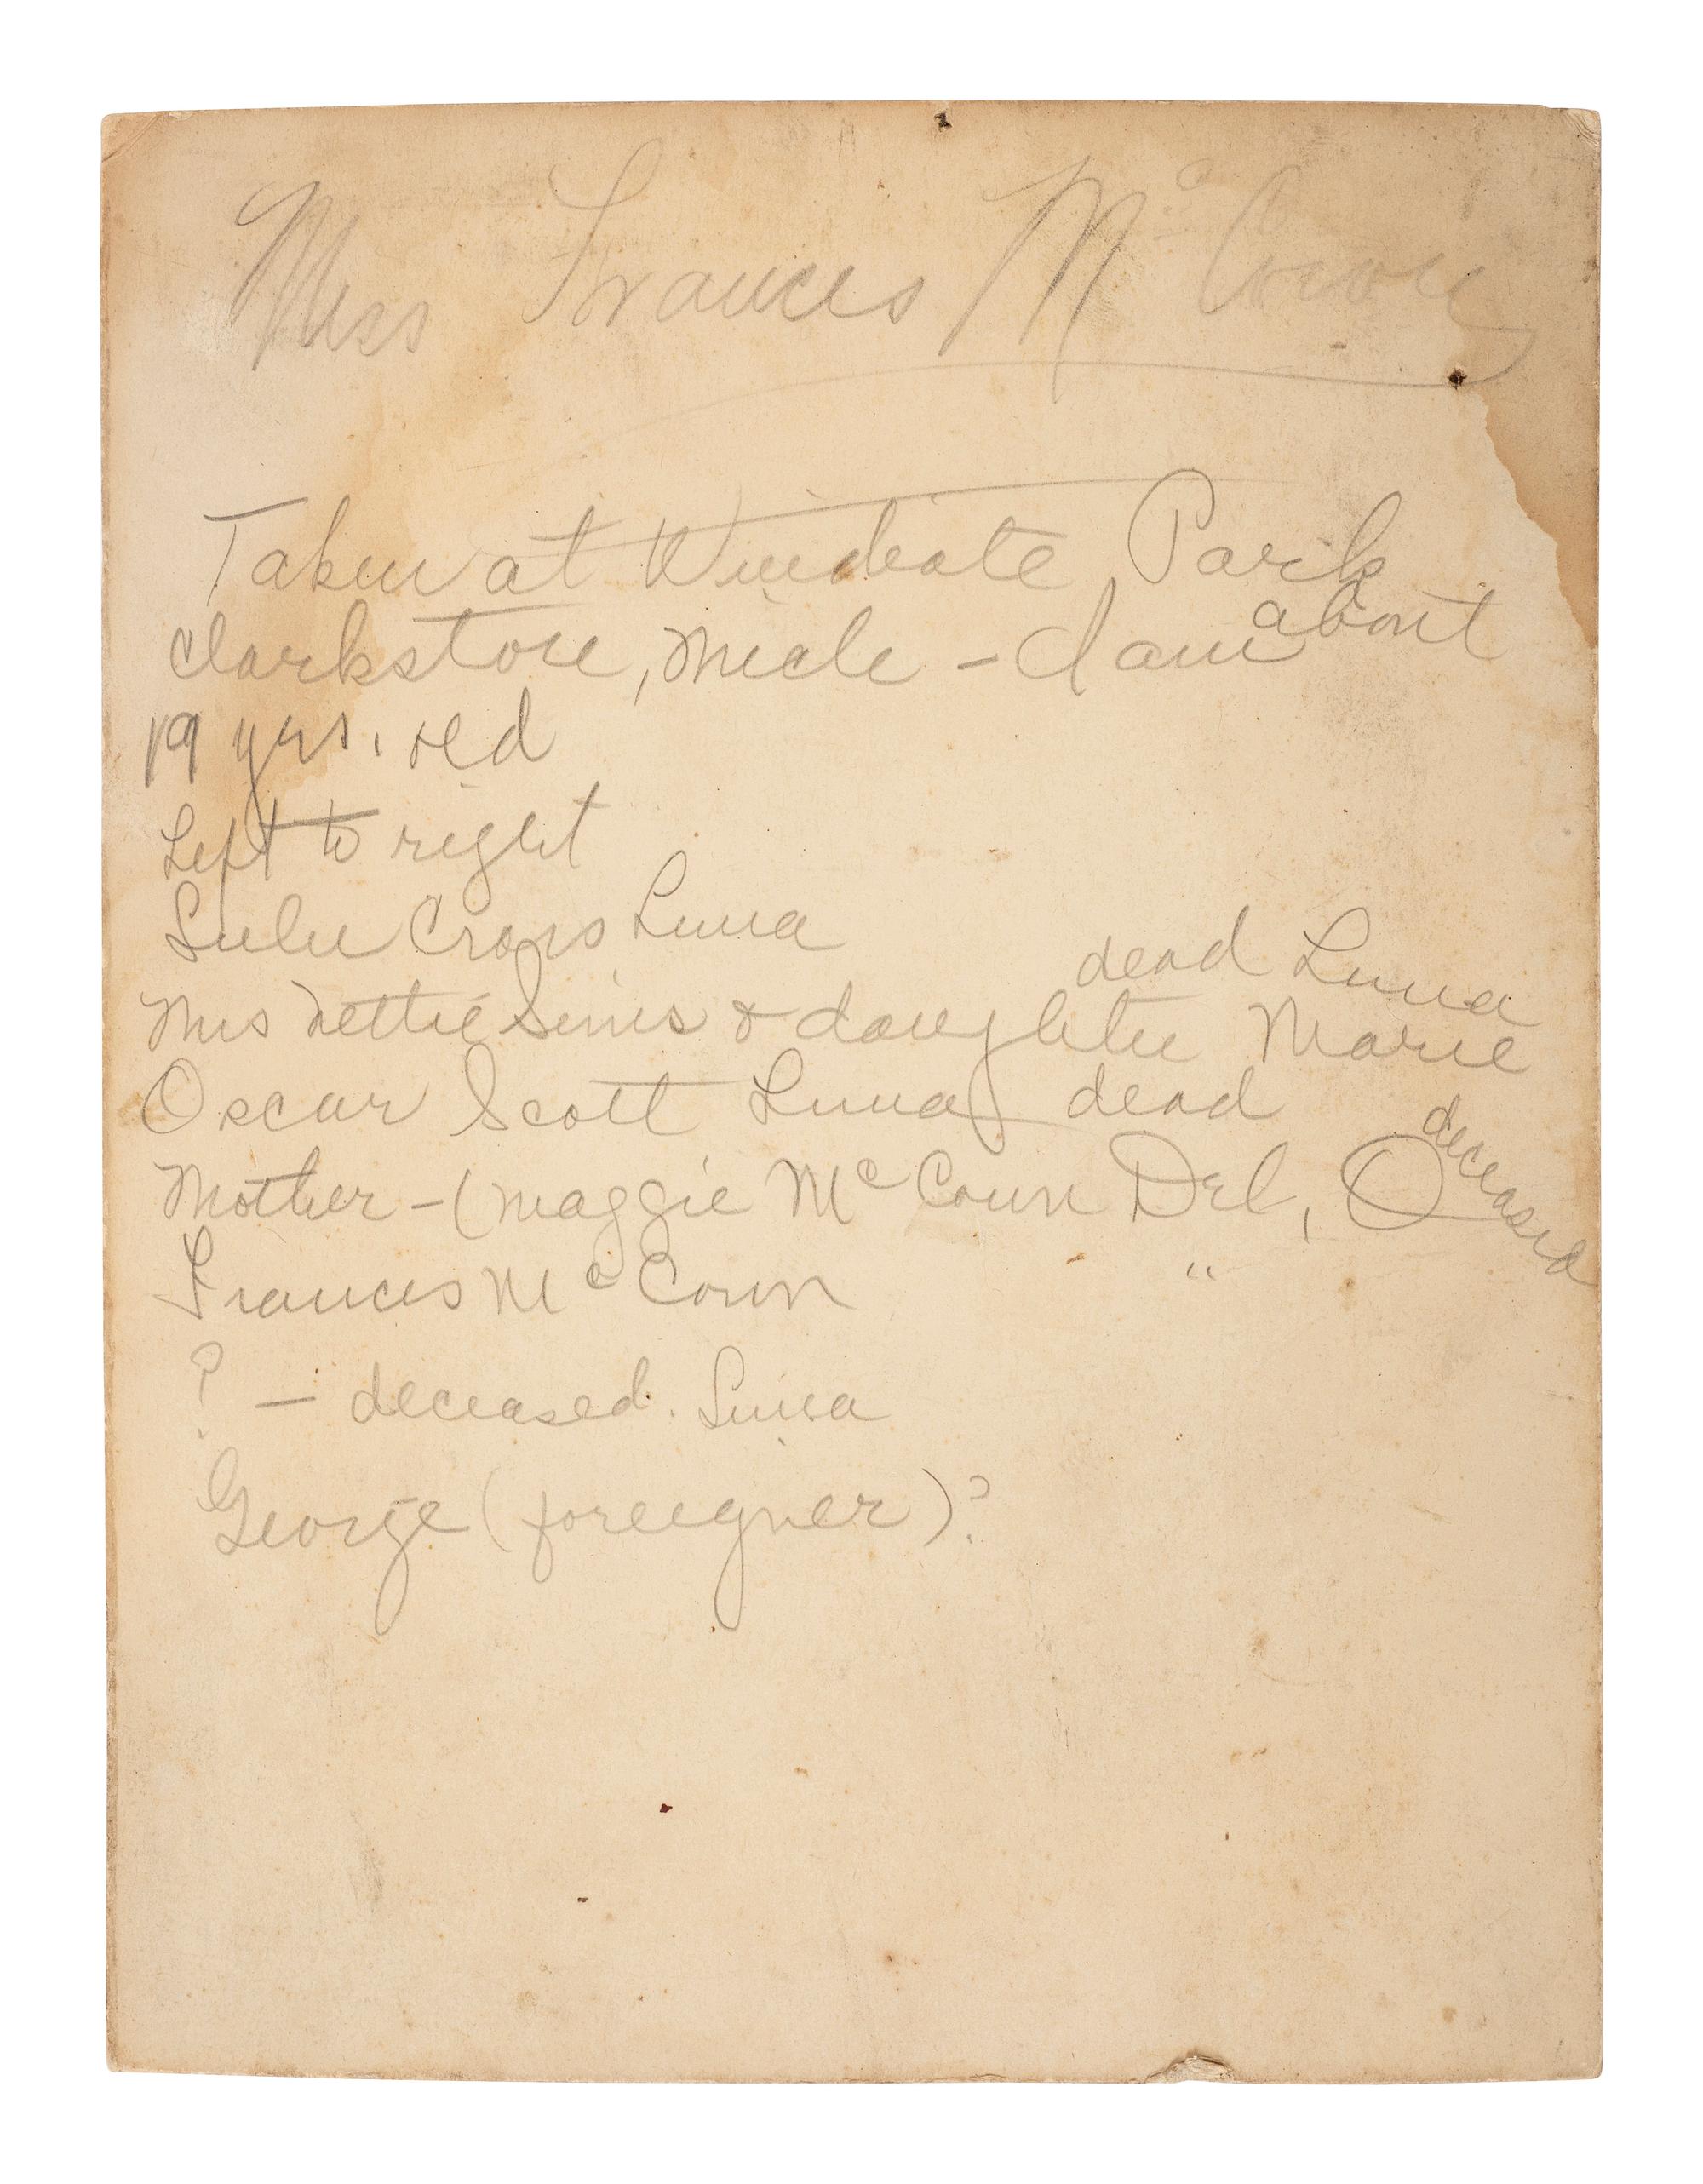 Miss Frances McCown
Taken at Windiate Park
Clarkston, Mich - I am about
19 yrs. old
Left to right
Lulu Cross Luna
dead Luna
Mrs Nettie Sims & daughter Marie
Oscar Scott Luna dead
Mother - (Maggie McCoun Del, deceased
Frances McCoun "
? - deceased. Luna
George (foreigner)?